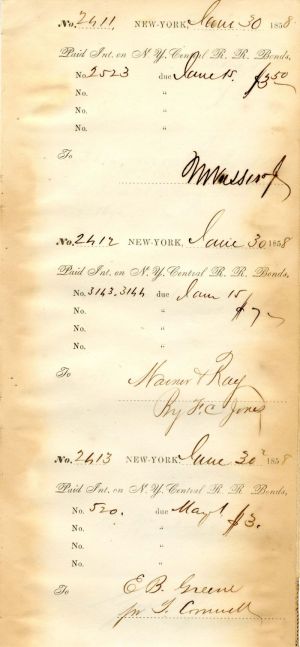 No. 2411 NEW-YORK, June 30 1858
Paid Int. on N. Y. Central R. R. Bonds,
No. 2523 due June 15. $3.50
No. "
No. "
No. "
To
No. 2412 NEW-YORK, June 30 1858
Paid Int. on N. Y. Central R. R. Bonds,
No. 3143.3144 due June 15 $7-
No. "
No. "
No. "
To
& Ray
By F. C. Jones
No. 2413 NEW-YORK, June 30 1858
Paid Int. on N. Y. Central R. R. Bonds,
No. 520. due May 1 $3.
No. "
No. "
No. "
To
E B. Greene
pr